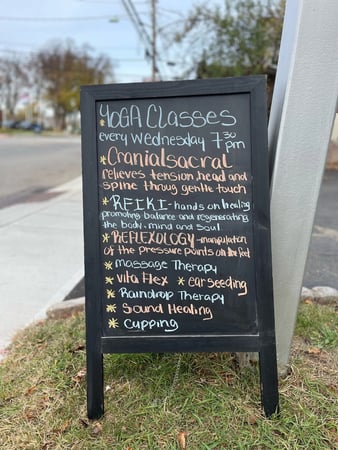 YOGA Classes
every Wednesday 7 30 pm
* Cranialsacral
relieves tension, head and
spine throug gentle touch
* REIKI - hands on healing
promoting balance and regenerating
the body, mind and soul
* REFLEXOLOGY - manipulation
of the pressure points on the feet
* Massage Therapy
* Vita Flex * ear seeding
* Raindrop Therapy
* Sound Healing
* Cupping